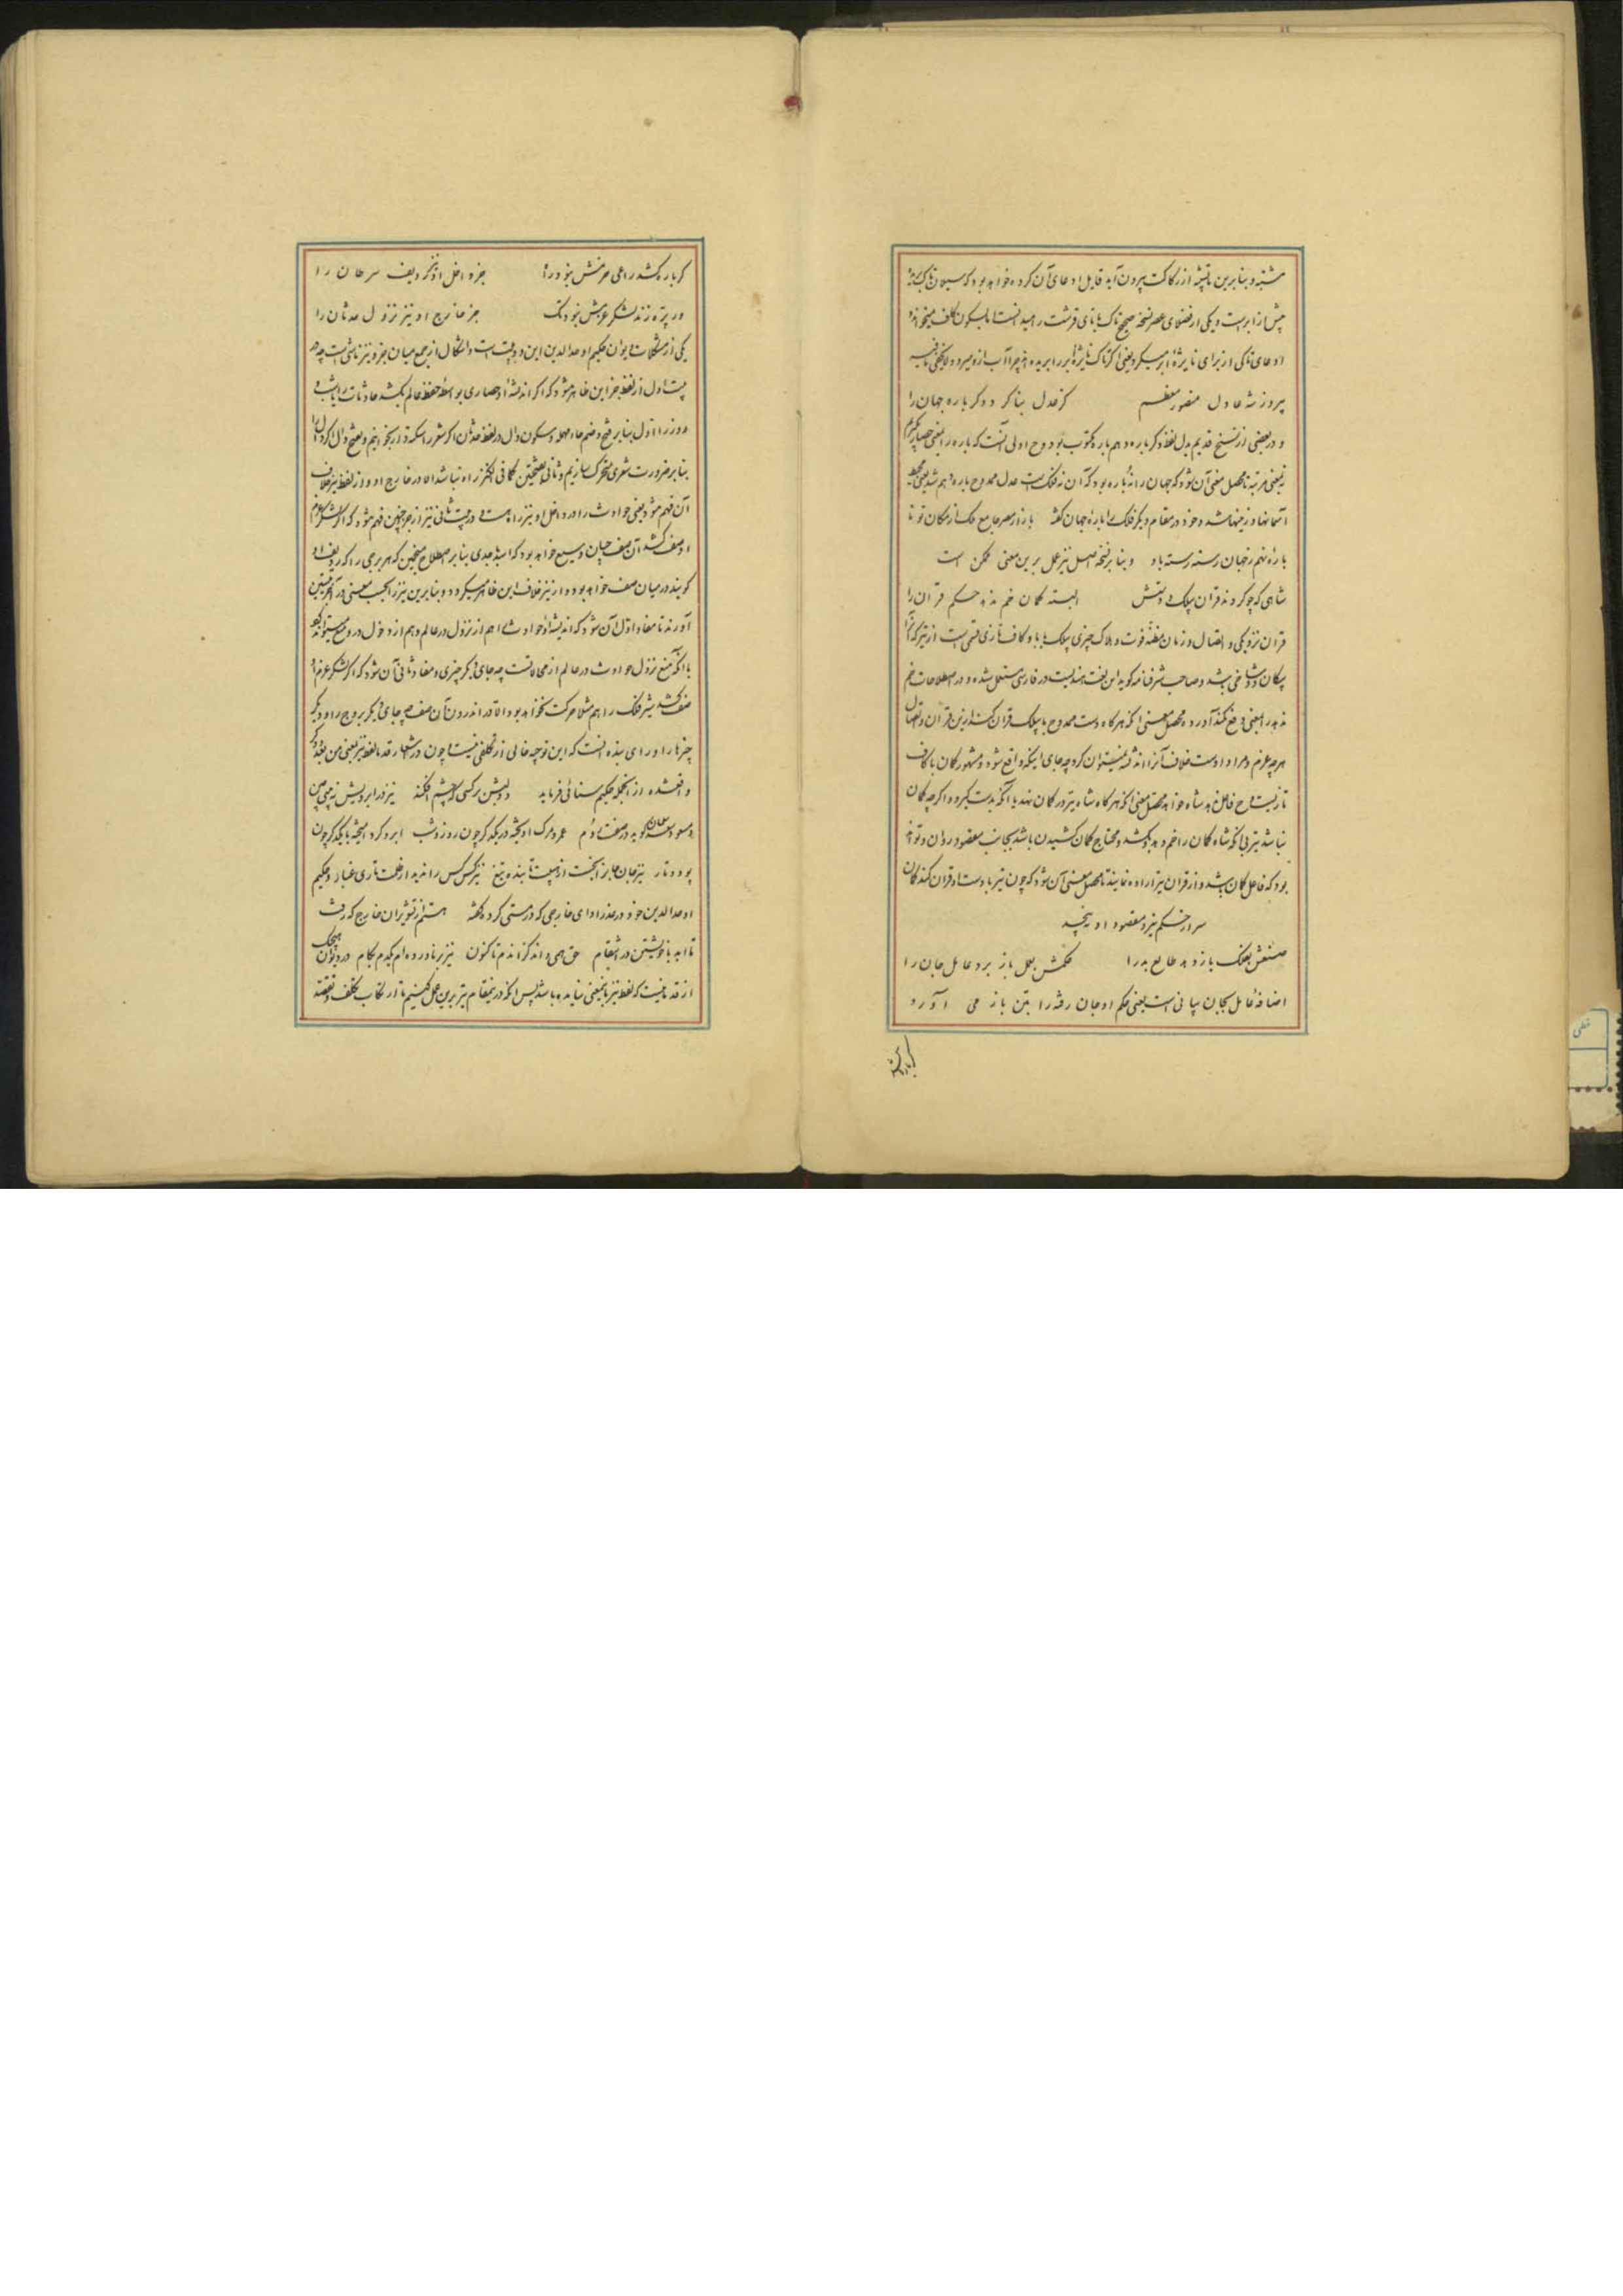 مشتبه و بنابرین تاپشه از رکاکت بیرون آید قابل ادعای آن کرده خواهد بود که سیلان تاک بریده
پیش از ابر است و یکی از فضلای عصر نسخه صحیح تاک با تای قرشت رامیدانست
ادعای تاکی از برای نایژهٔ ابر میکرد یعنی اگر تاک نایژهٔ ابر را بریده اند چرا آب ازو میرود
پیروز شه عادل منصور معظم کز عدل بنا کرد دگر باره جهان را
و در بعضی از نسخ قدیم بدل لفظ دگر باره دهم باره مکتوب بود و ح اولی آنست که باره را بمعنی حصار گیریم
نه بمعنی مرتبه تا محصل معنی آن شود که جهان را نه باره بود که آن نه فلک است عدل ممدوح باره دهم شد یعنی محیط
آسمانها و زمینها شد و خود در مقام دیگر فلک را بارهٔ جهان گفته باز از مصر جامع ملک از مکان تو تا
بارهٔ نهم ز جهان رسته رسته باد و بنابر نسخه اصل نیز حمل برین معنی ممکن است
شاهی که چو کردند قران بیلک و دستش البته کمان خم ندهد حکم قران را
قران نزدیکی و اتصال و زمان مظنهٔ فوت و هلاک چیزی بیلک با با و کاف تازی قسمی است از تیر که آنرا
پیکان دو شاخی باشد و صاحب شرفنامه گوید این لغت هندیست در فارسی مستعمل شده و در اصطلاحات خم
ندهد را بمعنی دفع نکند آورده محصل معنی آنکه هرگاه دست ممدوح با بیلک قران کند ازین قران و اتصال
هرچه عزم و مراد اوست خلاف آنرا اندیشه نمیتوان کرد چه جای اینکه واقع شود و مشهور کمان با کاف
تازیست و ح فاعل ندهد شاه خواهد محصل معنی آنکه هرگاه شاه تیر در کمان نهد یا آنکه بدست گیرد و اگرچه کمان
نباشد تیر بی آنکه شاه کمان را خم دهد و بکشد و محتاج کمان کشیدن باشد بجانب مقصود روان و تواند
بود که فاعل کمان باشد و از قران تیر اراده نمایند تا محصل معنی آن شود که چون تیر با دست او قران کند کمان
سر از حکم تیر و مقصود او نپیچد
صنعش بفلک باز دهد طالع بد را حکمش بعمل باز برد عامل جان را
اضافهٔ عامل بجان بیانی است یعنی حکم او جان رفته را بتن باز می آورد
گر باره کشد راعی حزمش نبود راه جز داخل او نیز ردیف سرطان را
ور پره زند لشکر عزمش نبود تک جز خارج او نیز نزول حدثان را
یکی از مشکلات دیوان حکیم اوحدالدین این دو بیت است و اشکال از جمع میان جز و نیز ناشی است چه در
بیت اول از لفظ جز این ظاهر میشود که اگر اندیشهٔ او حصاری بواسطهٔ حفظ عالم بکشد حادثات را با شب و
روز را اول بنابر فتح و ضم حاء مهمله و سکون دال در لفظ حدثان
بنابر ضرورت شعری متحرک سازیم و ثانی بفتحتین مکانی دیگر راه نباشد الا در خارج او و از لفظ نیز خلاف
آن فهم میشود یعنی حوادث را در داخل او نیز راه هست و در بیت ثانی نیز از جز چنین فهم میشود که اگر لشکر عزم
او صف کشد آن صف چنان وسیع خواهد بود که اسد و جدی بنابر اصطلاح منجمین که هر برجی را که ردیف او
گویند در میان صف خواهد بود و از نیز خلاف این ظاهر میگردد و بنابرین نیز را بحسب معنی در آخر بیتین
آورند تا مفاد اول آن شود که اندیشهٔ او حوادث را هم از نزول در عالم و هم از دخول در وضع میتواند کرد
با آنکه منع نزول حوادث در عالم از محالاتست چه جای دیگر چیزی و مفاد ثانی آن شود که اگر لشکر عزم او
صف کشد شیر فلک را هم مثلا حرکت نخواهد بود الا در اندرون آن صف چه جای دیگر بروج را و دیگر
چیزها را و رای بنده آنست که این توجیه خالی از تکلفی نیست و چون در اشعار قدما لفظ نیز بمعنی من بعد و دگر
واقعشده از آنجمله حکیم سنائی فرماید
و مسعود سعد سلمان گوید در صفت دام عمر و مرگ آویخته در یکدگر چون روز و شب ابر و گرد آمیخته با یکدگر چون
پود و تار نیز جان جانور انگیخت از هیبت تا بنده تیغ نیز کس کس را ندید از ظلمت تاری غبار و حکیم
اوحدالدین خود در عذر ادای خارجی که در مستی کرده گفته هستم از تشویر آن خارج که رفت
تا ابد با خویشتن در انتقام حق همی داند کز اندم تا کنون نیز بر ناورده ام یکدم بکام در دیوان هیچیک
از قدما نیست که لفظ نیز باینمعنی نیامده باشد پس آنکه در نیمقام نیز برین حمل کنیم تا از ارتکاب تکلف و تعقید